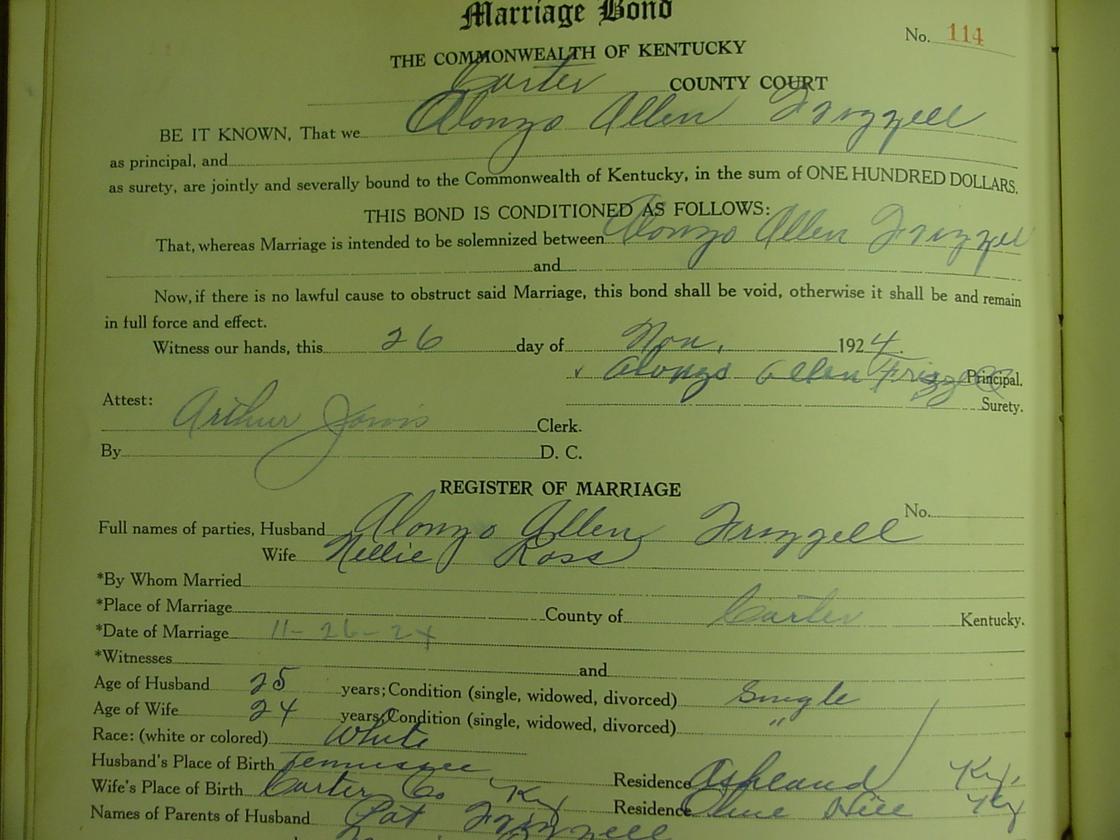 Marriage Bond
No. 114
THE COMMONWEALTH OF KENTUCKY
Carter COUNTY COURT
BE IT KNOWN, That we Alonzo Allen Frizzell
as principal, and
as surety, are jointly and severally bound to the Commonwealth of Kentucky, in the sum of ONE HUNDRED DOLLARS.
THIS BOND IS CONDITIONED AS FOLLOWS:
That, whereas Marriage is intended to be solemnized between Alonzo Allen Frizzell
and
Now, if there is no lawful cause to obstruct said Marriage, this bond shall be void, otherwise it shall be and remain
in full force and effect.
Witness our hands, this 26 day of Nov, 1924.
Alonzo Allen Frizzell Principal.
Attest:
Surety.
Arthur Jarvis Clerk.
By D. C.
REGISTER OF MARRIAGE
No.
Full names of parties, Husband Alonzo Allen Frizzell
Wife Nellie Ross
*By Whom Married
*Place of Marriage County of Carter Kentucky.
*Date of Marriage 11-26-24
*Witnesses and
Age of Husband 25 years; Condition (single, widowed, divorced) Single
Age of Wife 24 years; Condition (single, widowed, divorced) "
Race: (white or colored) White
Husband's Place of Birth Tennessee, Residence Ashland Ky.
Wife's Place of Birth Carter Co Ky Residence Olive Hill Ky
Names of Parents of Husband Pat Frizzell